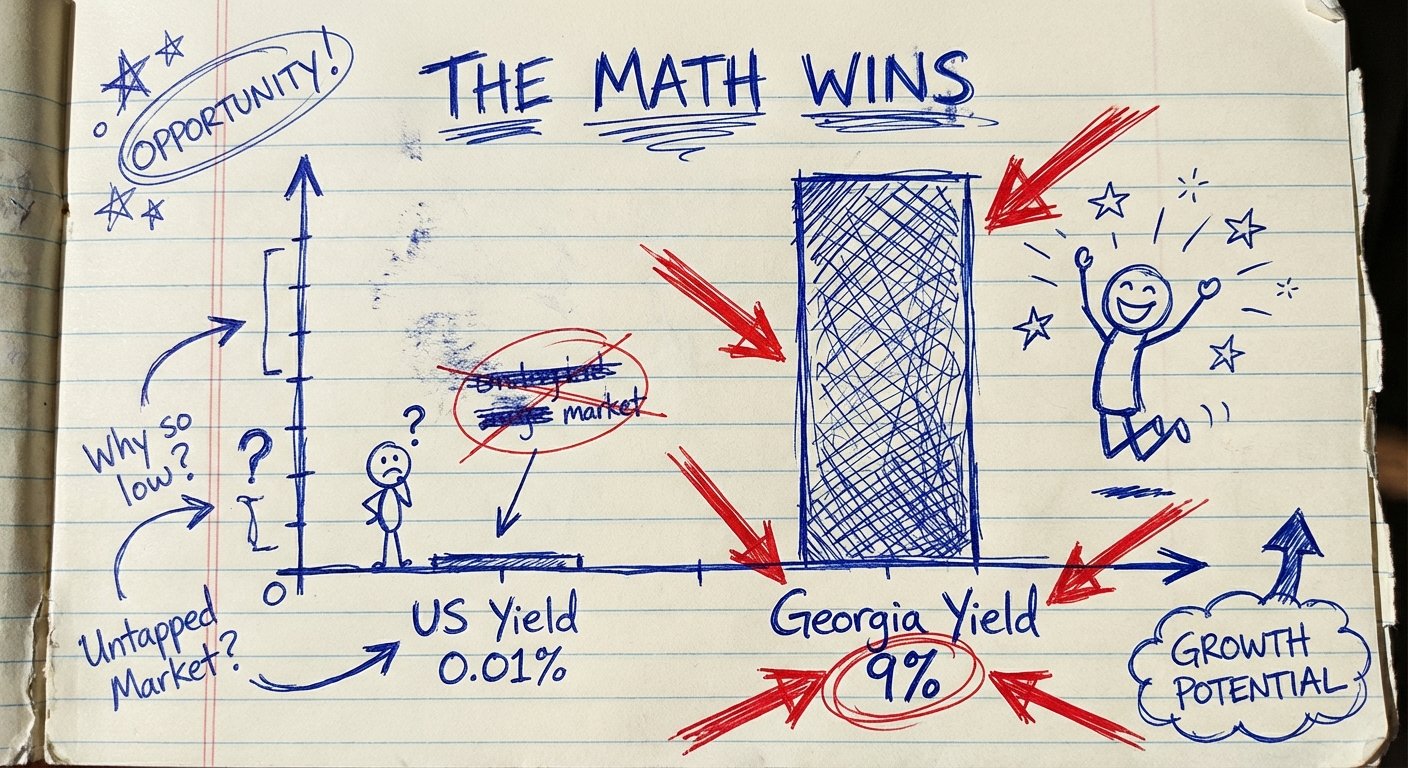 OPPORTUNITY!
THE MATH WINS
Why so
low?
?
?
market
Untapped
Market?
0
US Yield
0.01%
Georgia Yield
9%
GROWTH
POTENTIAL